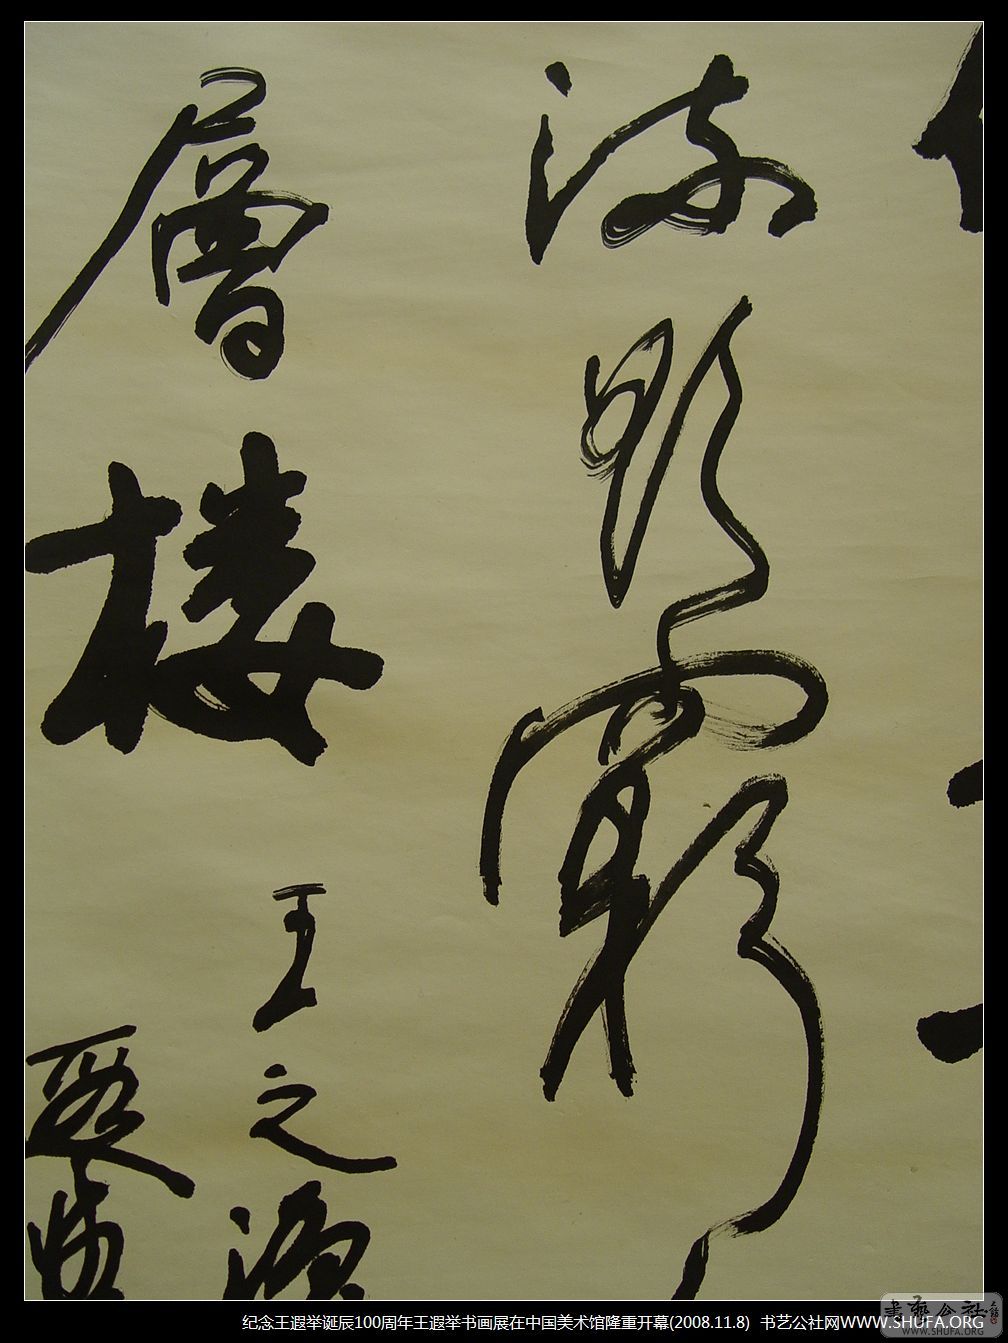 流欲窮
層楼
王之渙
纪念王遐举诞辰100周年王遐举书画展在中国美术馆隆重开幕(2008.11.8) 书艺公社网WWW.SHUFA.ORG
書藝公社
WWW.SHUFA.ORG